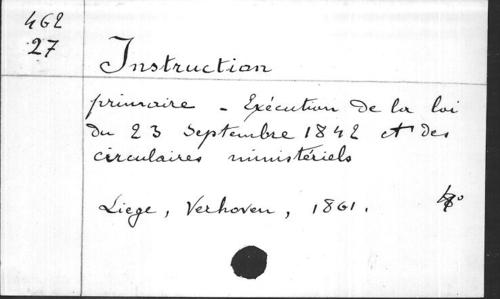 462
27
Instruction
primaire - Exécution de la loi
du 23 Septembre 1842 et des
circulaires ministériels
Liege, Verhoven, 1861.